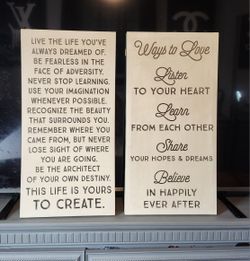 LIVE THE LIFE YOU'VE
ALWAYS DREAMED OF.
BE FEARLESS IN THE
FACE OF ADVERSITY.
NEVER STOP LEARNING.
USE YOUR IMAGINATION
WHENEVER POSSIBLE.
RECOGNIZE THE BEAUTY
THAT SURROUNDS YOU.
REMEMBER WHERE YOU
CAME FROM, BUT NEVER
LOSE SIGHT OF WHERE
YOU ARE GOING.
BE THE ARCHITECT
OF YOUR OWN DESTINY.
THIS LIFE IS YOURS
TO CREATE.
Ways to Love
Listen
TO YOUR HEART
Learn
FROM EACH OTHER
Share
YOUR HOPES & DREAMS
Believe
IN HAPPILY
EVER AFTER